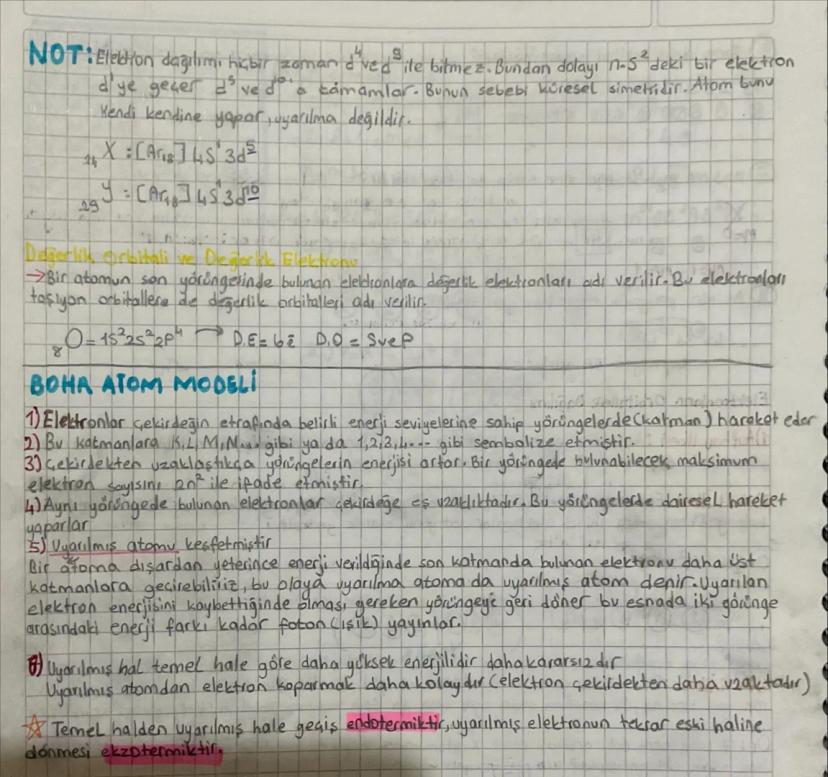 NOT: Elektron dağılımı hiçbir zaman d⁴ ve d⁹ ile bitmez. Bundan dolayı n.s² deki bir elektron
d'ye geçer d⁵ ve d¹⁰'a tamamlar. Bunun sebebi küresel simetridir. Atom bunu
kendi kendine yapar, uyarılma değildir.
₂₄X : [Ar₁₈] 4s¹ 3d⁵
₂₉Y : [Ar₁₈] 4s¹ 3d¹⁰
Değerlik Orbitali ve Değerlik Elektronu
→ Bir atomun son yörüngesinde bulunan elektronlara değerlik elektronları adı verilir. Bu elektronları
taşıyan orbitallere de değerlik orbitalleri adı verilir.
₈O = 1s² 2s² 2p⁴ → D.E = 6ē D.O = s ve p
BOHR ATOM MODELİ
1) Elektronlar çekirdeğin etrafında belirli enerji seviyelerine sahip yörüngelerde (katman) hareket eder
2) Bu katmanlara K, L, M, N... gibi ya da 1,2,3,4... gibi sembolize etmiştir.
3) Çekirdekten uzaklaştıkça yörüngelerin enerjisi artar. Bir yörüngede bulunabilecek maksimum
elektron sayısını 2n² ile ifade etmiştir.
4) Aynı yörüngede bulunan elektronlar çekirdeğe eş uzaklıktadır. Bu yörüngelerde dairesel hareket
yaparlar
5) Uyarılmış atomu keşfetmiştir
Bir atoma dışardan yeterince enerji verildiğinde son katmanda bulunan elektronu daha üst
katmanlara geçirebiliriz, bu olaya uyarılma atoma da uyarılmış atom denir. Uyarılan
elektron enerjisini kaybettiğinde olması gereken yörüngeye geri döner bu esnada iki yörünge
arasındaki enerji farkı kadar foton (ışık) yayınlar.
6) Uyarılmış hal temel hale göre daha yüksek enerjilidir daha kararsızdır
Uyarılmış atomdan elektron koparmak daha kolaydır (elektron çekirdekten daha uzaktadır)
☆ Temel halden uyarılmış hale geçiş endotermiktir, uyarılmış elektronun tekrar eski haline
dönmesi ekzotermiktir.